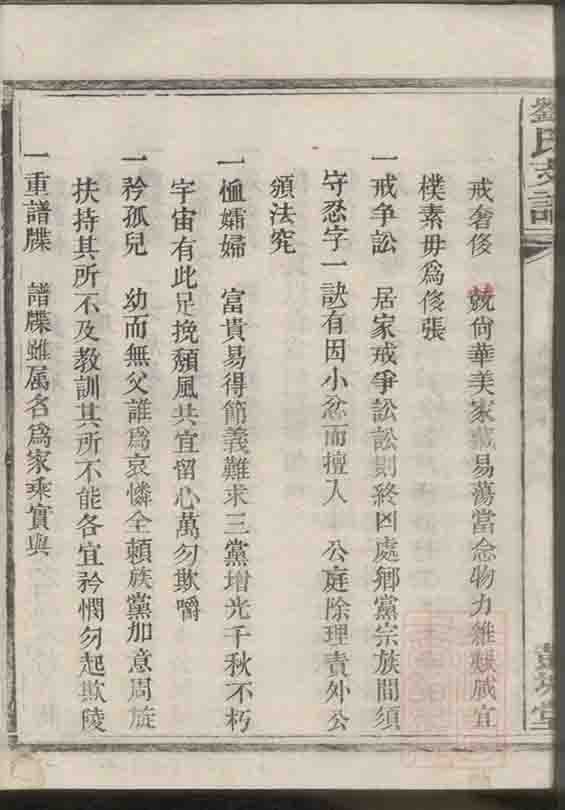 劉氏支譜
一戒奢侈 競尚華美家易蕩當念物力維艱咸宜
樸素毋為侈張
一戒爭訟 居家戒爭訟訟則終凶處鄉黨宗族間須
守忍字一訣有因小忿而擅入 公庭除理責外公
領法究
一恤孀婦 富貴易得節義難求三黨增光千秋不朽
宇宙有此足挽頹風共宜留心萬勿欺嚼
一矜孤兒 幼而無父誰為哀憐全賴族黨加意周旋
扶持其所不及教訓其所不能各宜矜憫勿起欺陵
一重譜牒 譜牒雖属名為家乘實與
堂